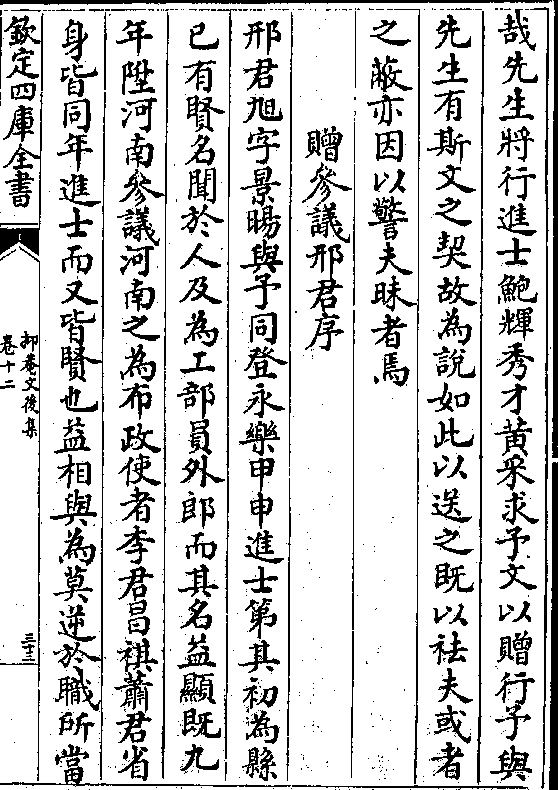 哉先生將行進士鮑輝秀才黃采求予文以贈行予與
先生有斯文之契故為說如此以送之既以袪夫或者
之蔽亦因以警夫昧者焉
贈參議邢君序
邢君旭字景暘與予同登永樂甲申進士第其初為縣
已有賢名聞於人及為工部員外郎而其名益顯既九
年陞河南參議河南之為布政使者李君昌祺蕭君省
身皆同年進士而又皆賢也益相與為莫逆於職所當
欽定四庫全書
抑菴文後集
卷十二
三十三